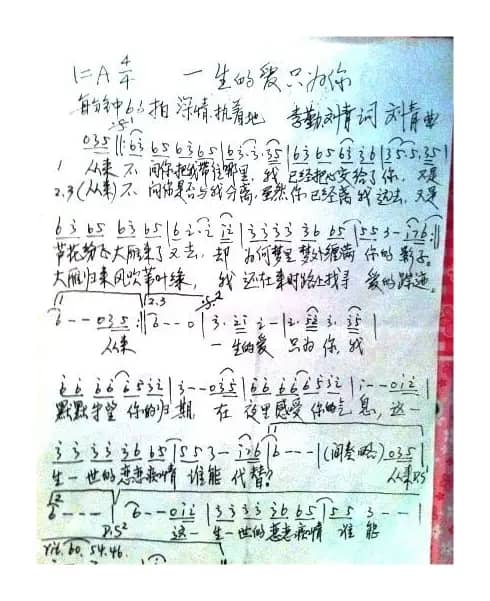 1=A 4/4 一生的爱只为你
每分钟66拍 深情.执着地 李勤 刘青词 刘青曲
035 ‖: 63 65 63 65 | 63·3·35 | 63 65 63 36 | 35·5·35 |
1 从来 不 问你把我带往哪里, 我 已经把心交给了你, 又是
2.3 (从来) 不 问你是否与我分离, 虽然你已经离我远去, 又是
63 65 63 65 | 62·2 12 | 3333 36 65 | 553- 176 :‖
芦花纷飞大雁来了又去, 却 为何梦里梦外缠满 你的影子.
大雁归来风吹苇叶绿, 我 还在来时路上找寻 爱的踪迹.
1 2.3 𝄋2
6 - - 035 :‖ 6 - - 0 | 3· 21 2 - | 2· 52 3· 35 |
从来 一生的爱 只为你, 我
66 16 16532 | 3 - - 035 | 66 66 6532 | 1 - - 012 |
默默守望 你的归期, 在 夜里感受 你的气息, 这一
3 3 3 3 36 65 | 553 - 176 | 6 - - - | (间奏略) 035 |
生一世的恋恋痴情 谁能 代替? 从来 D.S1
2
6 - - - | 6 - - 012 | 3333 36 65 | 55 3 - - |
D.S2 这一 生一世的恋恋痴情 谁 能
rit. 60. 54. 46.